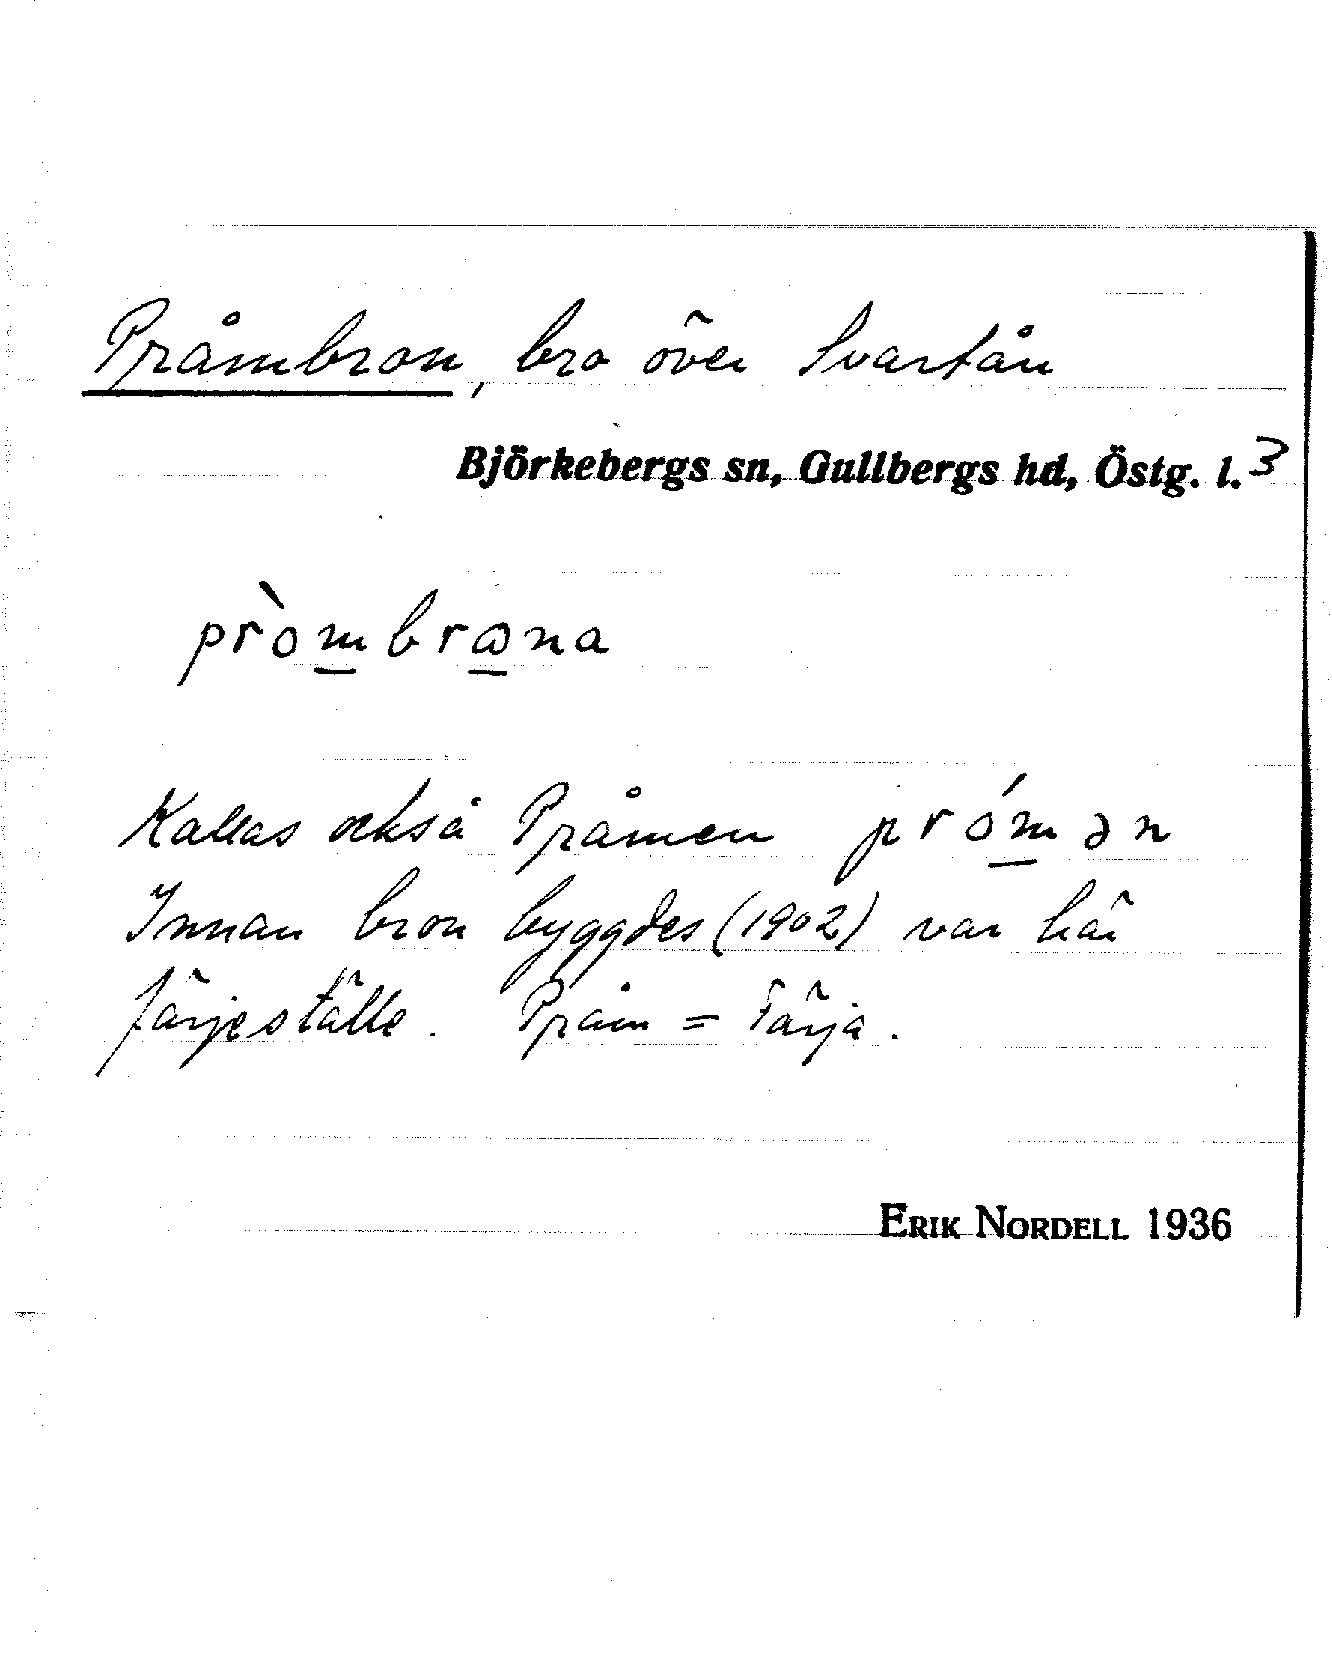 Pråmbron, bro över Svartån
Björkebergs sn, Gullbergs hd, Östg. l. 3
pròm̲brω̲na
Kallas också Pråmen próm̲ən
Innan bron byggdes (1902) var här
färjeställe. Pråm = Färja.
ERIK NORDELL 1936